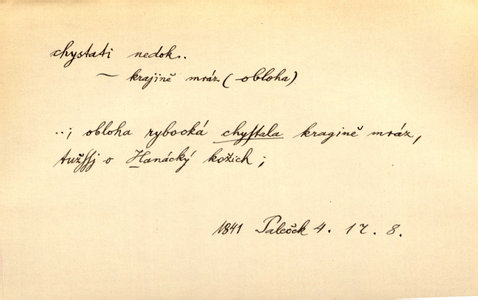 chystati nedok..
~ krajině mráz (obloha)
..; obloha rybocká chyſtala kragině mráz,
tužſſj o Hanácký kožich;
1841 Palček 4. 17. 8.